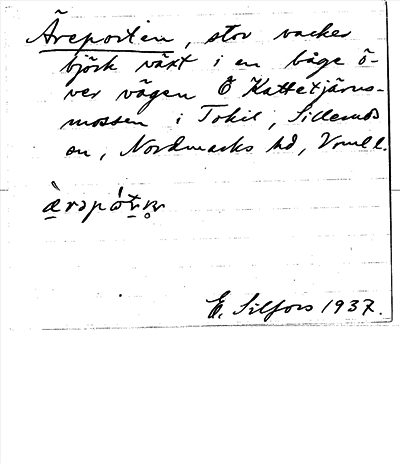 Äreporten, stor vacker
björk växt i en båge ö-
ver vägen Ö Kattetjärns-
mossen i Tokil, Sillerud
sn, Nordmarks hd, Vrml.
E. Silfors 1937.